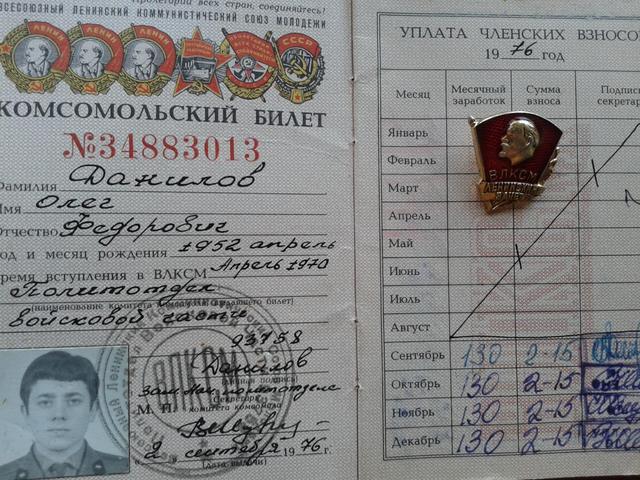 Пролетарии всех стран, соединяйтесь!
ВСЕСОЮЗНЫЙ ЛЕНИНСКИЙ КОММУНИСТИЧЕСКИЙ СОЮЗ МОЛОДЕЖИ
ЛЕНИН
ЛЕНИН
ЛЕНИН
СССР
КОМСОМОЛЬСКИЙ БИЛЕТ
№34883013
Фамилия Данилов
Имя Олег
Отчество Федорович
Год и месяц рождения 1952 апрель
Время вступления в ВЛКСМ Апрель 1970
Политотдел
(наименование комитета
билет)
войсковой части
93758
Данилов
(личная подпись)
Зам. Нач. политотдела
Секретарь
М. П. комитета комсомола
2 сентября 1976 г.
(дата выдачи)
ВЛКСМ
УПЛАТА ЧЛЕНСКИХ ВЗНОСО
1976 год
Месяц
Месячный заработок
Сумма взноса
Подпись секретар
Январь
Февраль
Март
Апрель
Май
Июнь
Июль
Август
Сентябрь 130 2-15
Октябрь 130 2-15
Ноябрь 130 2-15
Декабрь 130 2-15
ВЛКСМ
ЛЕНИНСКИЙ
ЗАЧЕТ